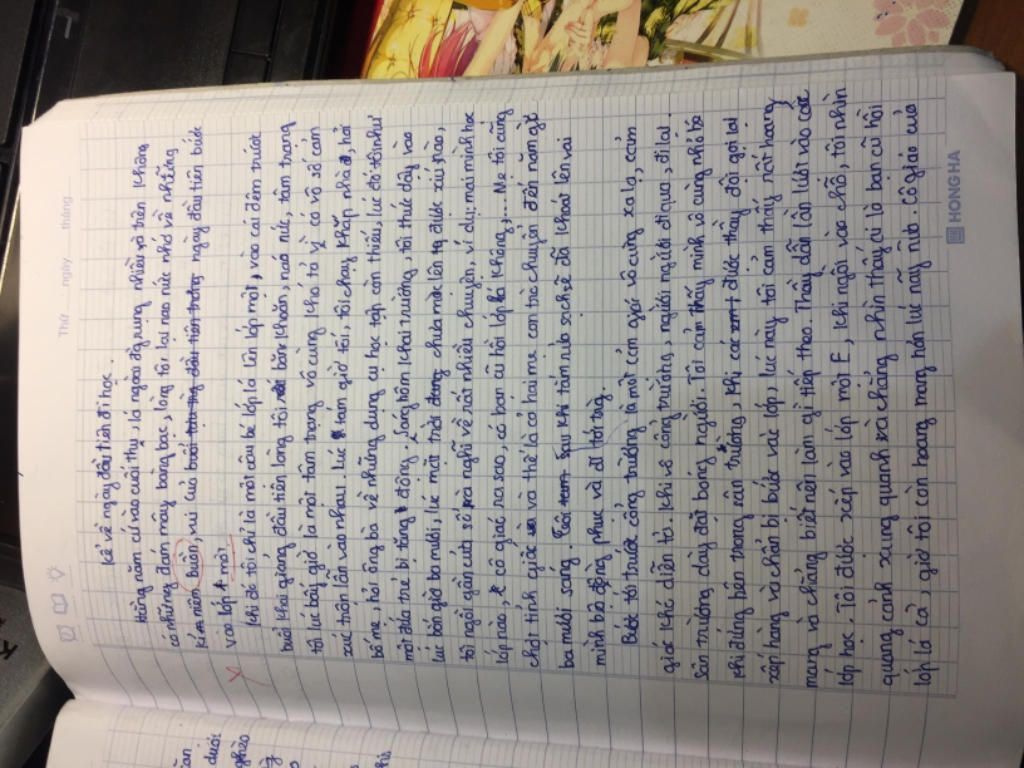 Thứ ngày tháng
Kể về ngày đầu tiên đi học.
Hằng năm cứ vào cuối thu, lá ngoài đường rụng nhiều và trên không
có những đám mây bàng bạc, lòng tôi lại nao nức nhớ về những
kỉ niệm buồn, vui của buổi tựu trường đầu tiên trong ngày đầu tiên bước
vào lớp 1 một
Khi đó tôi chỉ là một cậu bé lớp lá lên lớp một, vào cái đêm trước
buổi khai giảng đầu tiên lòng tôi băn khoăn, náo nức, tâm trạng
tôi lúc bấy giờ là một tâm trạng vô cùng khó tả vì có vô số cảm
xúc trộn lẫn vào nhau. Lúc tám giờ tối, tôi chạy khắp nhà, hỏi
bố mẹ, hỏi ông bà về những dụng cụ học tập còn thiếu, lúc đó tôi như
một đứa trẻ bị tăng động. Sáng hôm khai trường, tôi thức dậy vào
lúc bốn giờ ba mươi, lúc mặt trời đang chưa mọc lên tạ được xíu nào,
tôi ngồi gần cửa sổ mà nghĩ về rất nhiều chuyện, ví dụ: mai mình học
lớp nào, cô giáo ra sao, có bạn cũ hồi lớp lá không,.... Mẹ tôi cũng
chợt tỉnh giấc và thế là cả hai mẹ con trò chuyện đến năm giờ
ba mươi sáng. Sau khi tắm rửa sạch sẽ đã khoát lên vai
mình bộ đồng phục và đi tới trường.
Bước tới trước cổng trường là một cảm giác vô cùng xa lạ, cảm
giác khó diễn tả. Khi vô cổng trường, người người đi qua, đi lại.
Sân trường dày đặt bóng người. Tôi cảm thấy mình vô cùng nhỏ bé
khi đứng bên trong sân trường, khi các được thầy đội gọi lại
xếp hàng và chuẩn bị bước vào lớp, lúc này tôi cảm thấy rất hoang
mang và chẳng biết nên làm gì tiếp theo. Thầy dẫn lần lượt vào các
lớp học. Tôi được xếp vào lớp một E, khi ngồi vào chỗ, tôi nhìn
quang cảnh xung quanh và chẳng nhìn thấy cí là bạn cũ hồi
lớp lá cả, giờ tôi còn hoang mang hơn lúc nãy nữa. Cô giáo của
HONG HA
dưới
nghèo